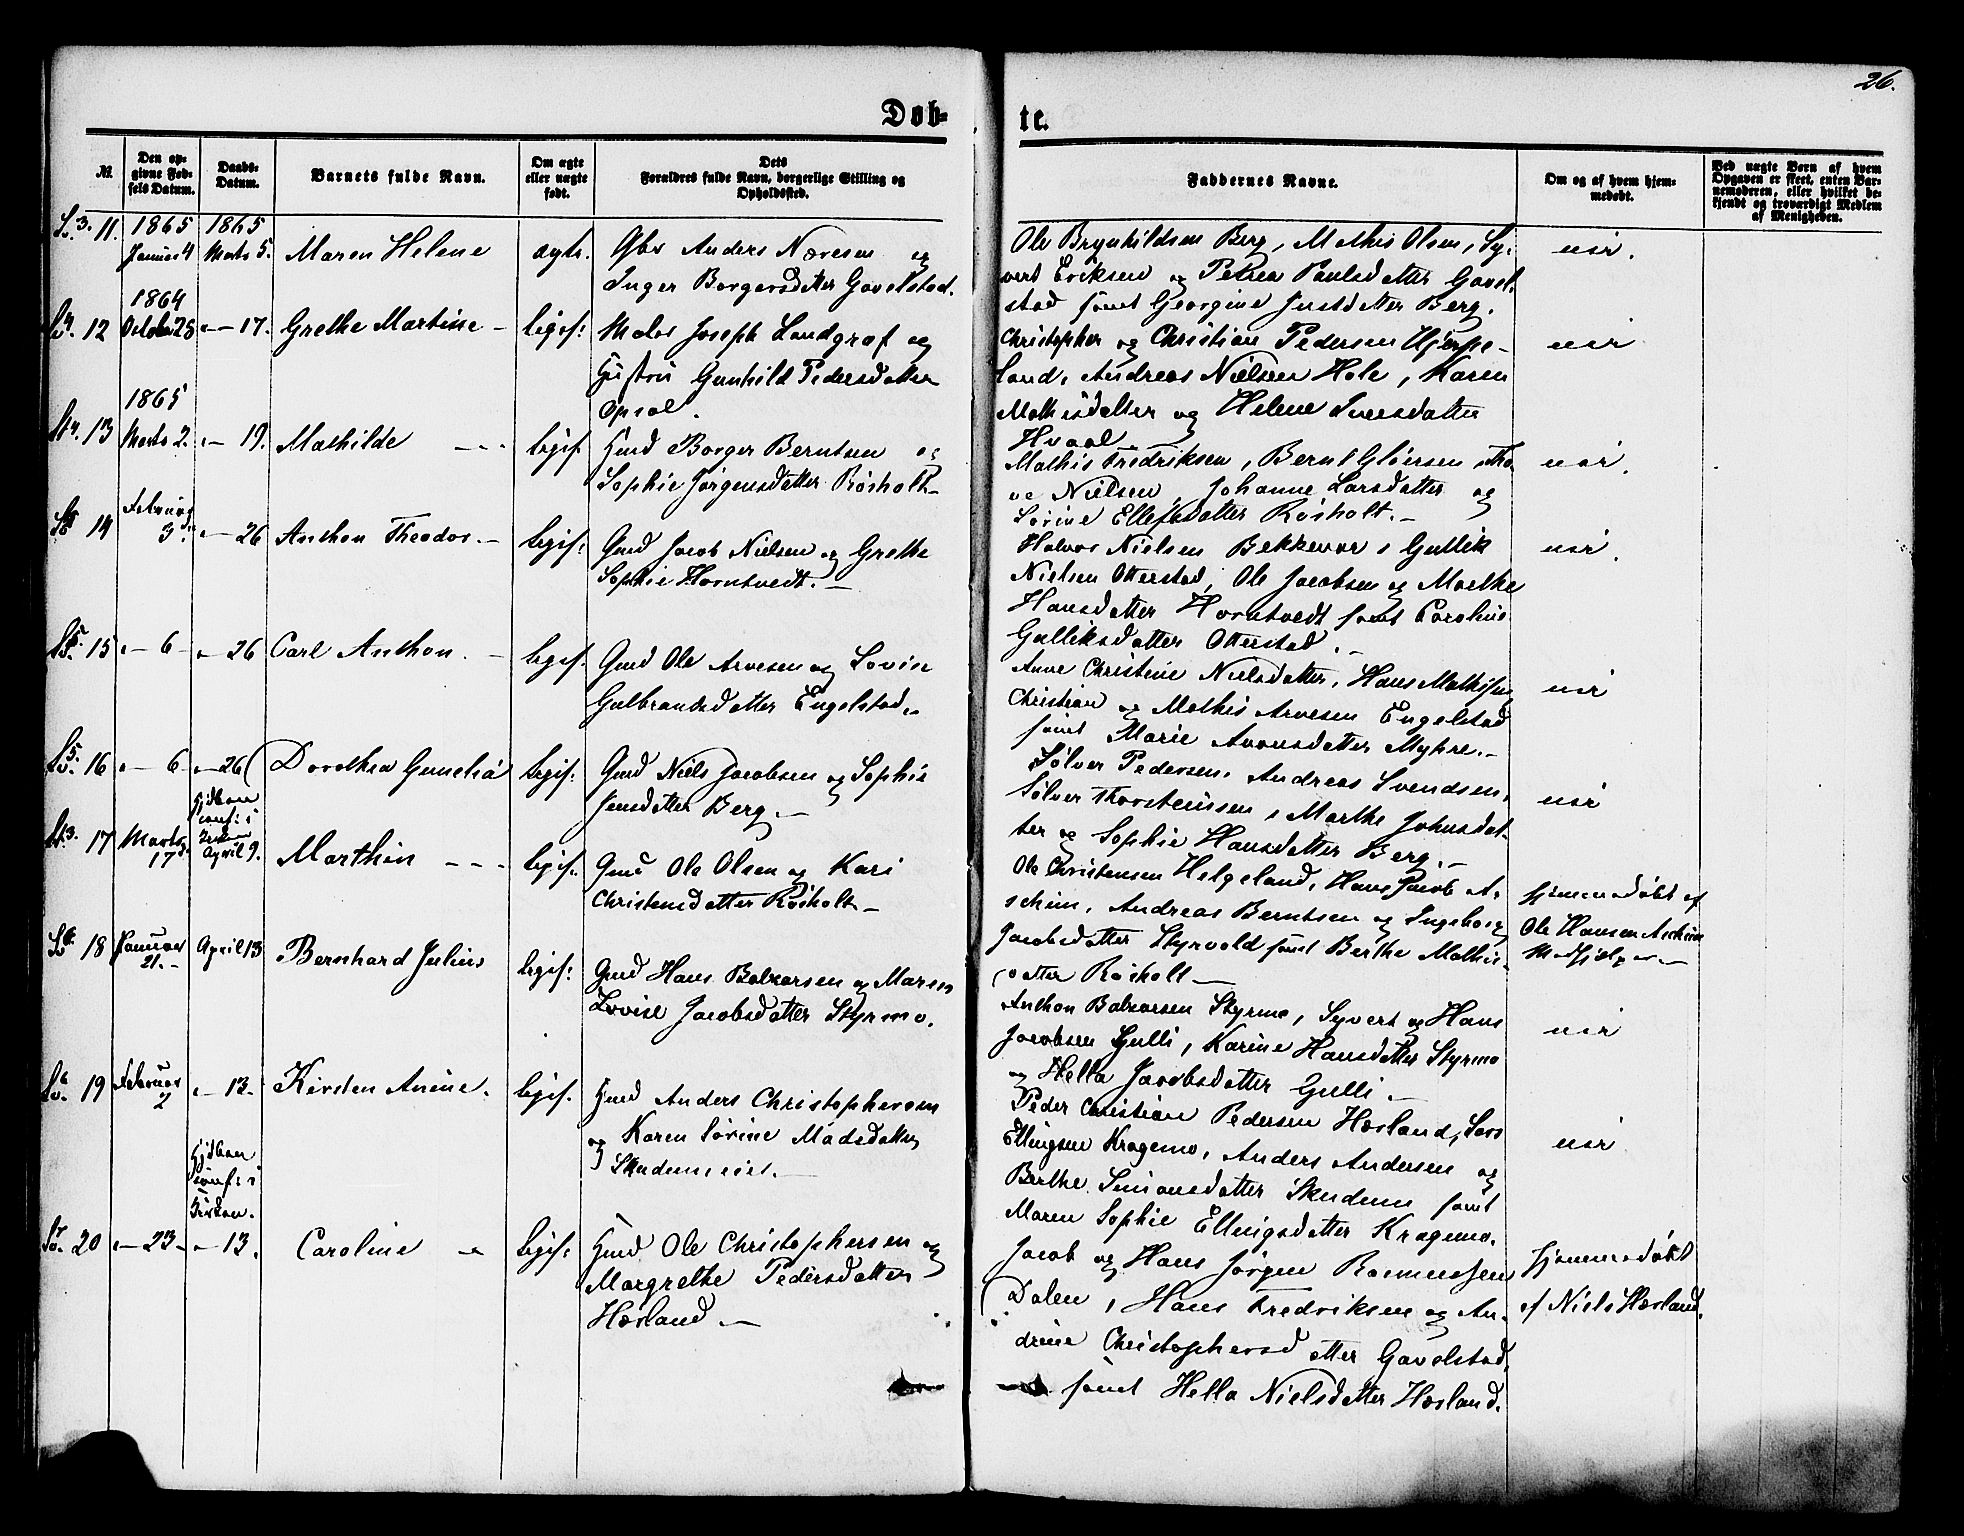 26.
Døb-
te.
№.
Den op-
givne Fød-
sels Datum.
Daabs-
Datum.
Barnets fulde Navn.
Om ægte
eller uægte
født.
Dets
Forældres fulde Navn, borgerlige Stilling og
Opholdssted.
Faddernes Navne.
Om og af hvem hjem-
medøbt.
Ved uægte Børn af hvem
Opgaven er skeet, enten Bar-
nemoderen, eller hvilket be-
kjendt og troværdigt Medlem
af Menigheden.
11.
1865
Januar 4
1865
Marts 5.
Maren Helene
ægte.
Gbr Anders Næresen og
Inger Borgersdatter Gavelstad.
Ole Brynhildsen Berg, Mathis Olsen, Sy-
vert Eriksen og Petrea Paulsdatter Gavel-
stad samt Georgine Justdatter Berg.
nei.
12
1864
October 25
"— 17.
Grethe Martine —
legif:
Maler Joseph Landgraf og
Hustru Gunhild Pedersdatter
Opsal.
Christopher og Christian Pedersen Hjerpe-
land, Andreas Nielsen Hole, Karen
Mathisdatter og Helene Iversdatter
Hvaal
nei
13
1865
Marts 2.
"— 19.
Mathilde
legif.
Gmd Borger Berntsen og
Sophie Jørgensdatter Røsholt—
Mathis Fredriksen, Bernt Gløersen, Tho-
re Nielsen, Johanne Larsdatter og
Sørine Ellefsdatter Røsholt.—
nei.
14
Februar
3.
"— 26
Anthon Theodor.—
legif:
Gmd Jacob Nielsen og Grethe
Sophie Horntvedt.—
Halvor Nielsen Bekkevar, Gullik
Nielsen Otterstad, Ole Jacobsen og Marthe
Hansdatter Horntvedt samt Caroline
Gulliksdatter Otterstad.—
nei.
15
"— 6
"— 26
Carl Anthon.—
legif.
Gmd Ole Arvesen og Lovise
Gulbrandsdatter Engelstad.
Anne Christine Nielsdatter, Hans Mathisen
Christian og Mathis Arvesen Engelstad
samt Marie Aronsdatter Myhre.—
nei
16
"— 6
"— 26
Dorothea Gunelia
legif:
Gmd Niels Jacobsen og Sophie
Jensdatter Berg.—
Sølver Pedersen, Andreas Svendsen,
Sølver Thorsteinssen, Marthe Johnsdat-
ter og Sophie Hansdatter Berg.—
nei
17
Marts
17
Hjdbøn
conf: i
Kirken
April 9.
Marthin — — —
legif:
Gmd Ole Olsen og Kari
Christensdatter Røsholt—
Ole Christensen Helgeland, Hans Jacob A-
schim, Andreas Berntsen og Ingeborg
Jacobsdatter Styrvold samt Berthe Mathis-
datter Røsholt—
hjemmedøbt af
Ole Hansen Aschim
Medhjelper—
18
Januar
21.—
April 13
Bernhard Julius
legif:
Gmd Hans Balzarsen og Maren
Lovise Jacobsdatter Styrmo.
Anthon Balzarsen Styrmo, Syvert og Hans
Jacobsen Gulli, Karine Hansdatter Styrmo
og Hella Jacobsdatter Gulli.—
nei
19
Februar
2
"— 13.
Kirsten Anine.
legif.
Gmd Anders Christophersen
og Karen Sørine Madsdatter
Skudem
Peder Christian Pedersen Hæsland, Lars
Ellingsen Kragemo, Anders Andersen og
Berthe Simonsdatter Skudem samt
Maren Sophie Ellingsdatter Kragemo.
nei
20
"— 23—
Hjdbøn
conf: i
Kirken.
"— 13.
Caroline —
legif:
Gmd Ole Christophersen og
Margrethe Pedersdatter
Hæsland.—
Jacob og Hans Jørgen Rasmussen
Dalen, Hans Fredriksen og An-
drine Christophersdatter Gavelstad
samt Hella Nielsdatter Hæsland.
hjemmedøbt
af Niels Hæsland.